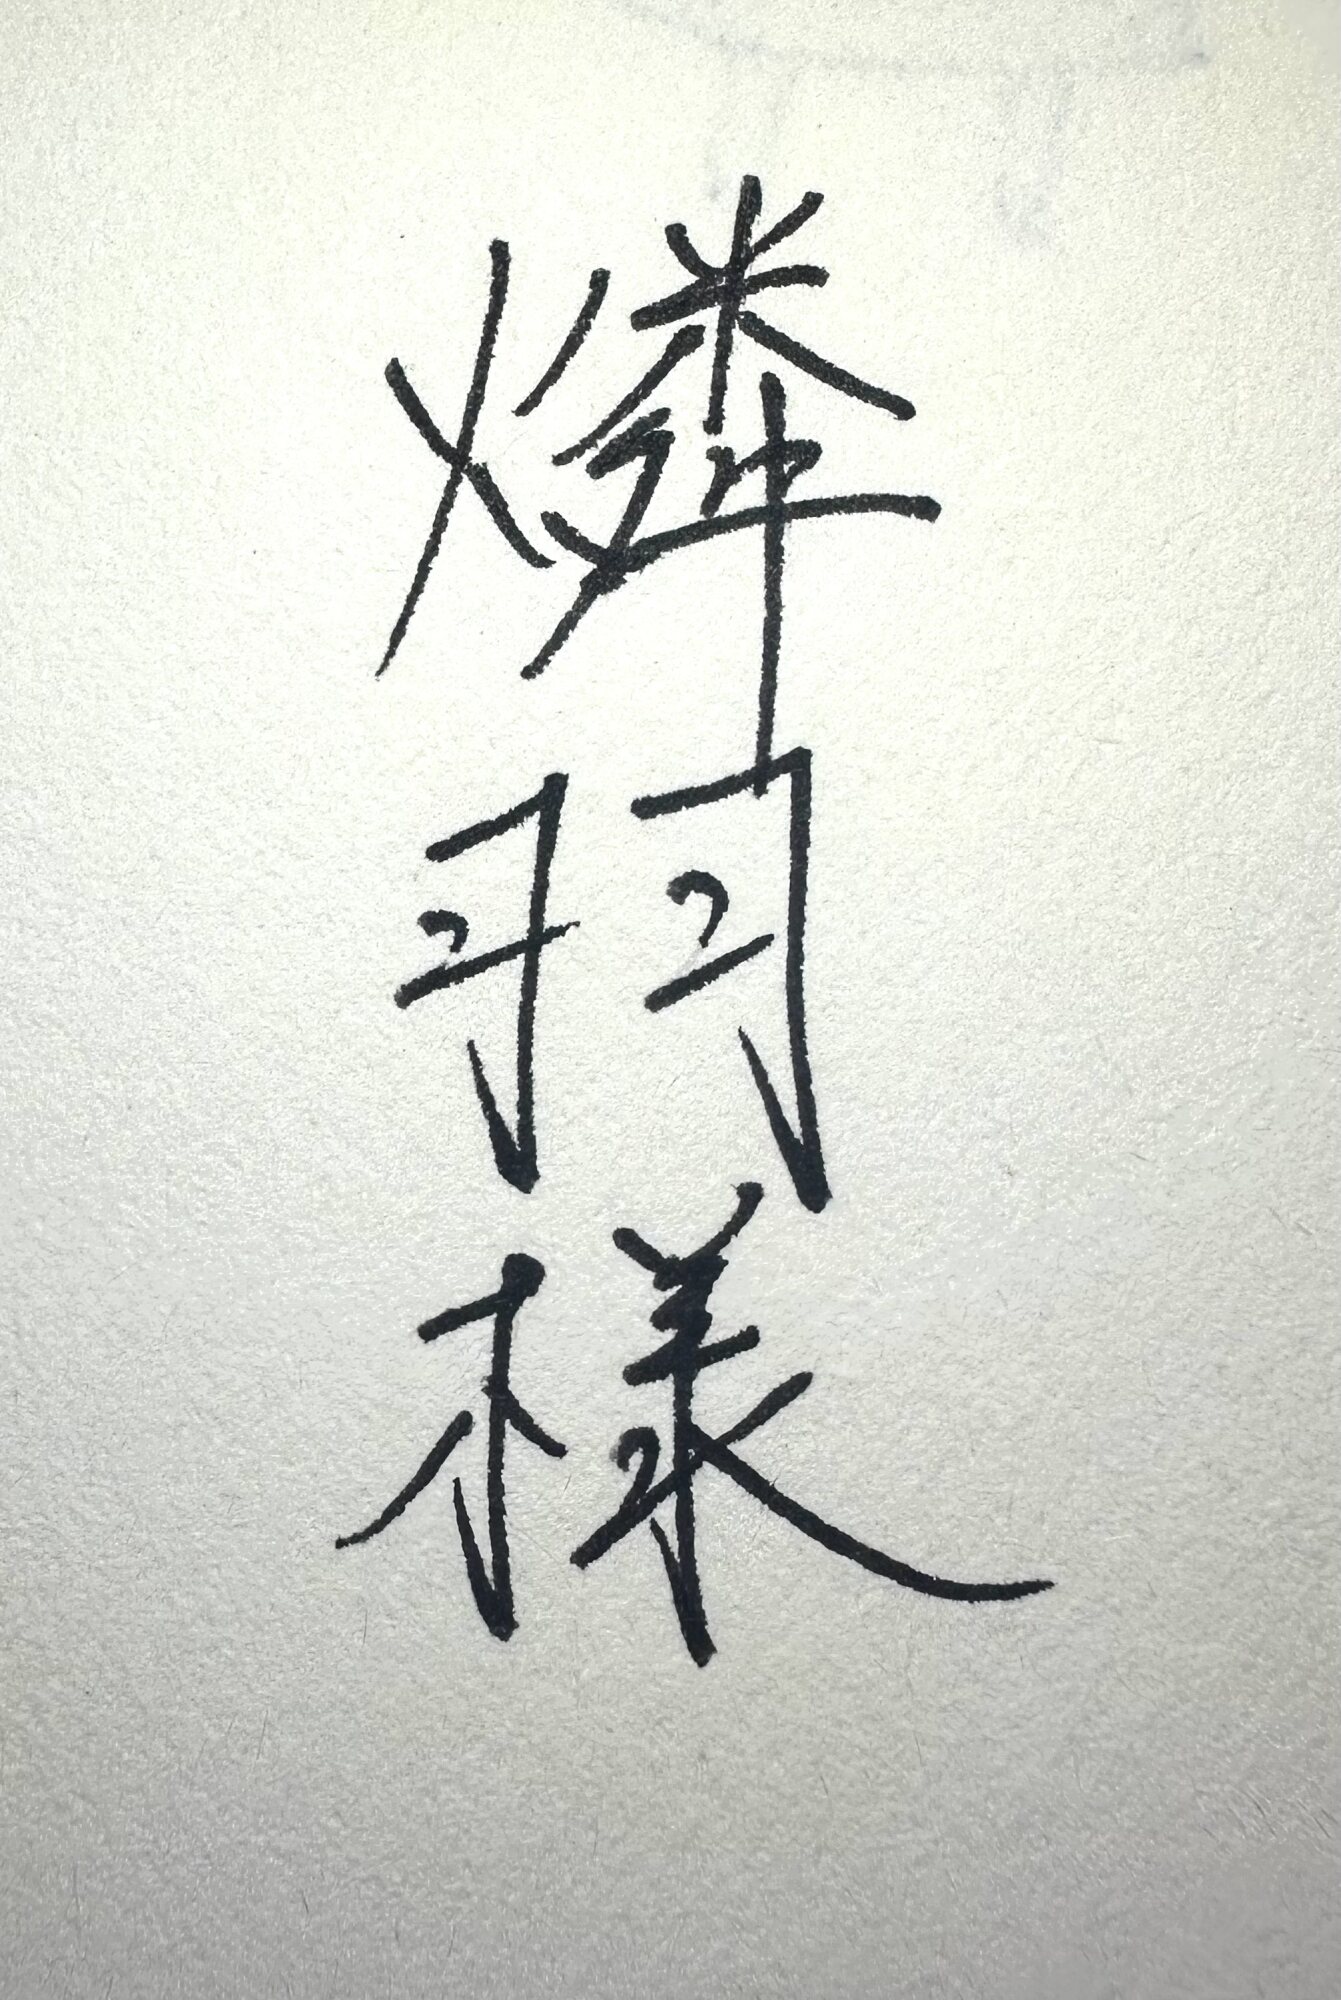 燐羽様